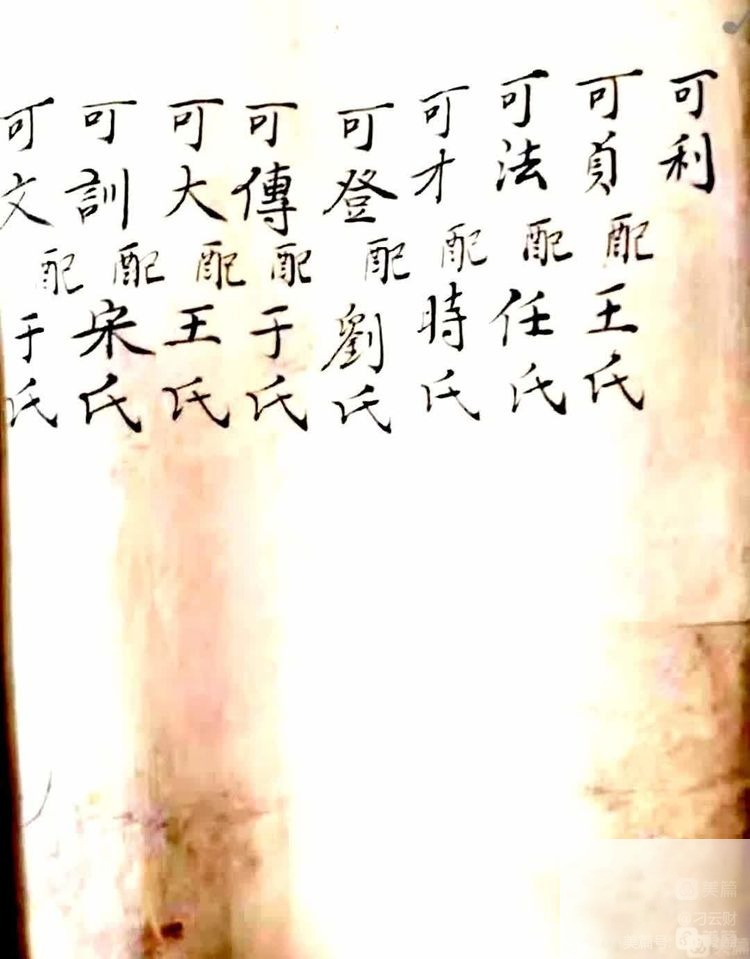 可利
可貞配王氏
可法配任氏
可才配時氏
可登配劉氏
可傳配于氏
可大配王氏
可訓配宋氏
可文配于氏
美篇
刁云财
美篇号